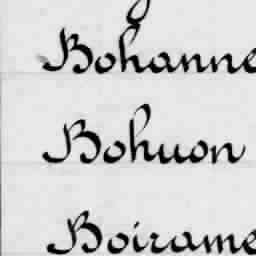 Bohanne
Bohuon
Boirame